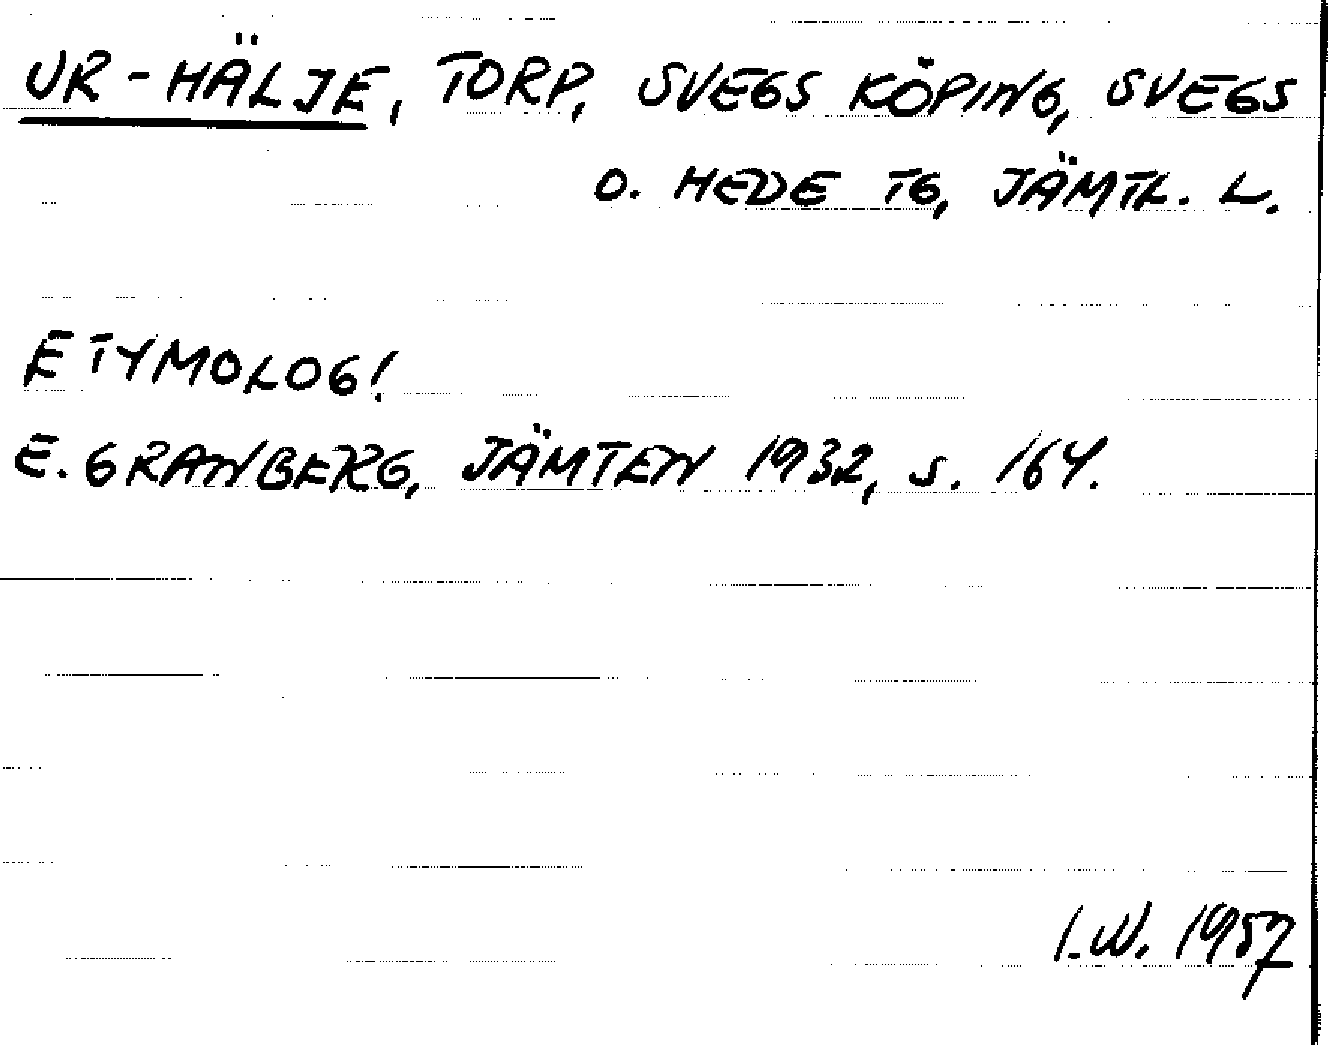 UR-HÄLJE, TORP, SVEGS KÖPING, SVEGS
O. HEDE TG, JÄMTL. L.
ETYMOLOGI.
E. GRANBERG, JÄMTEN 1932, S. 164.
I.W. 1957